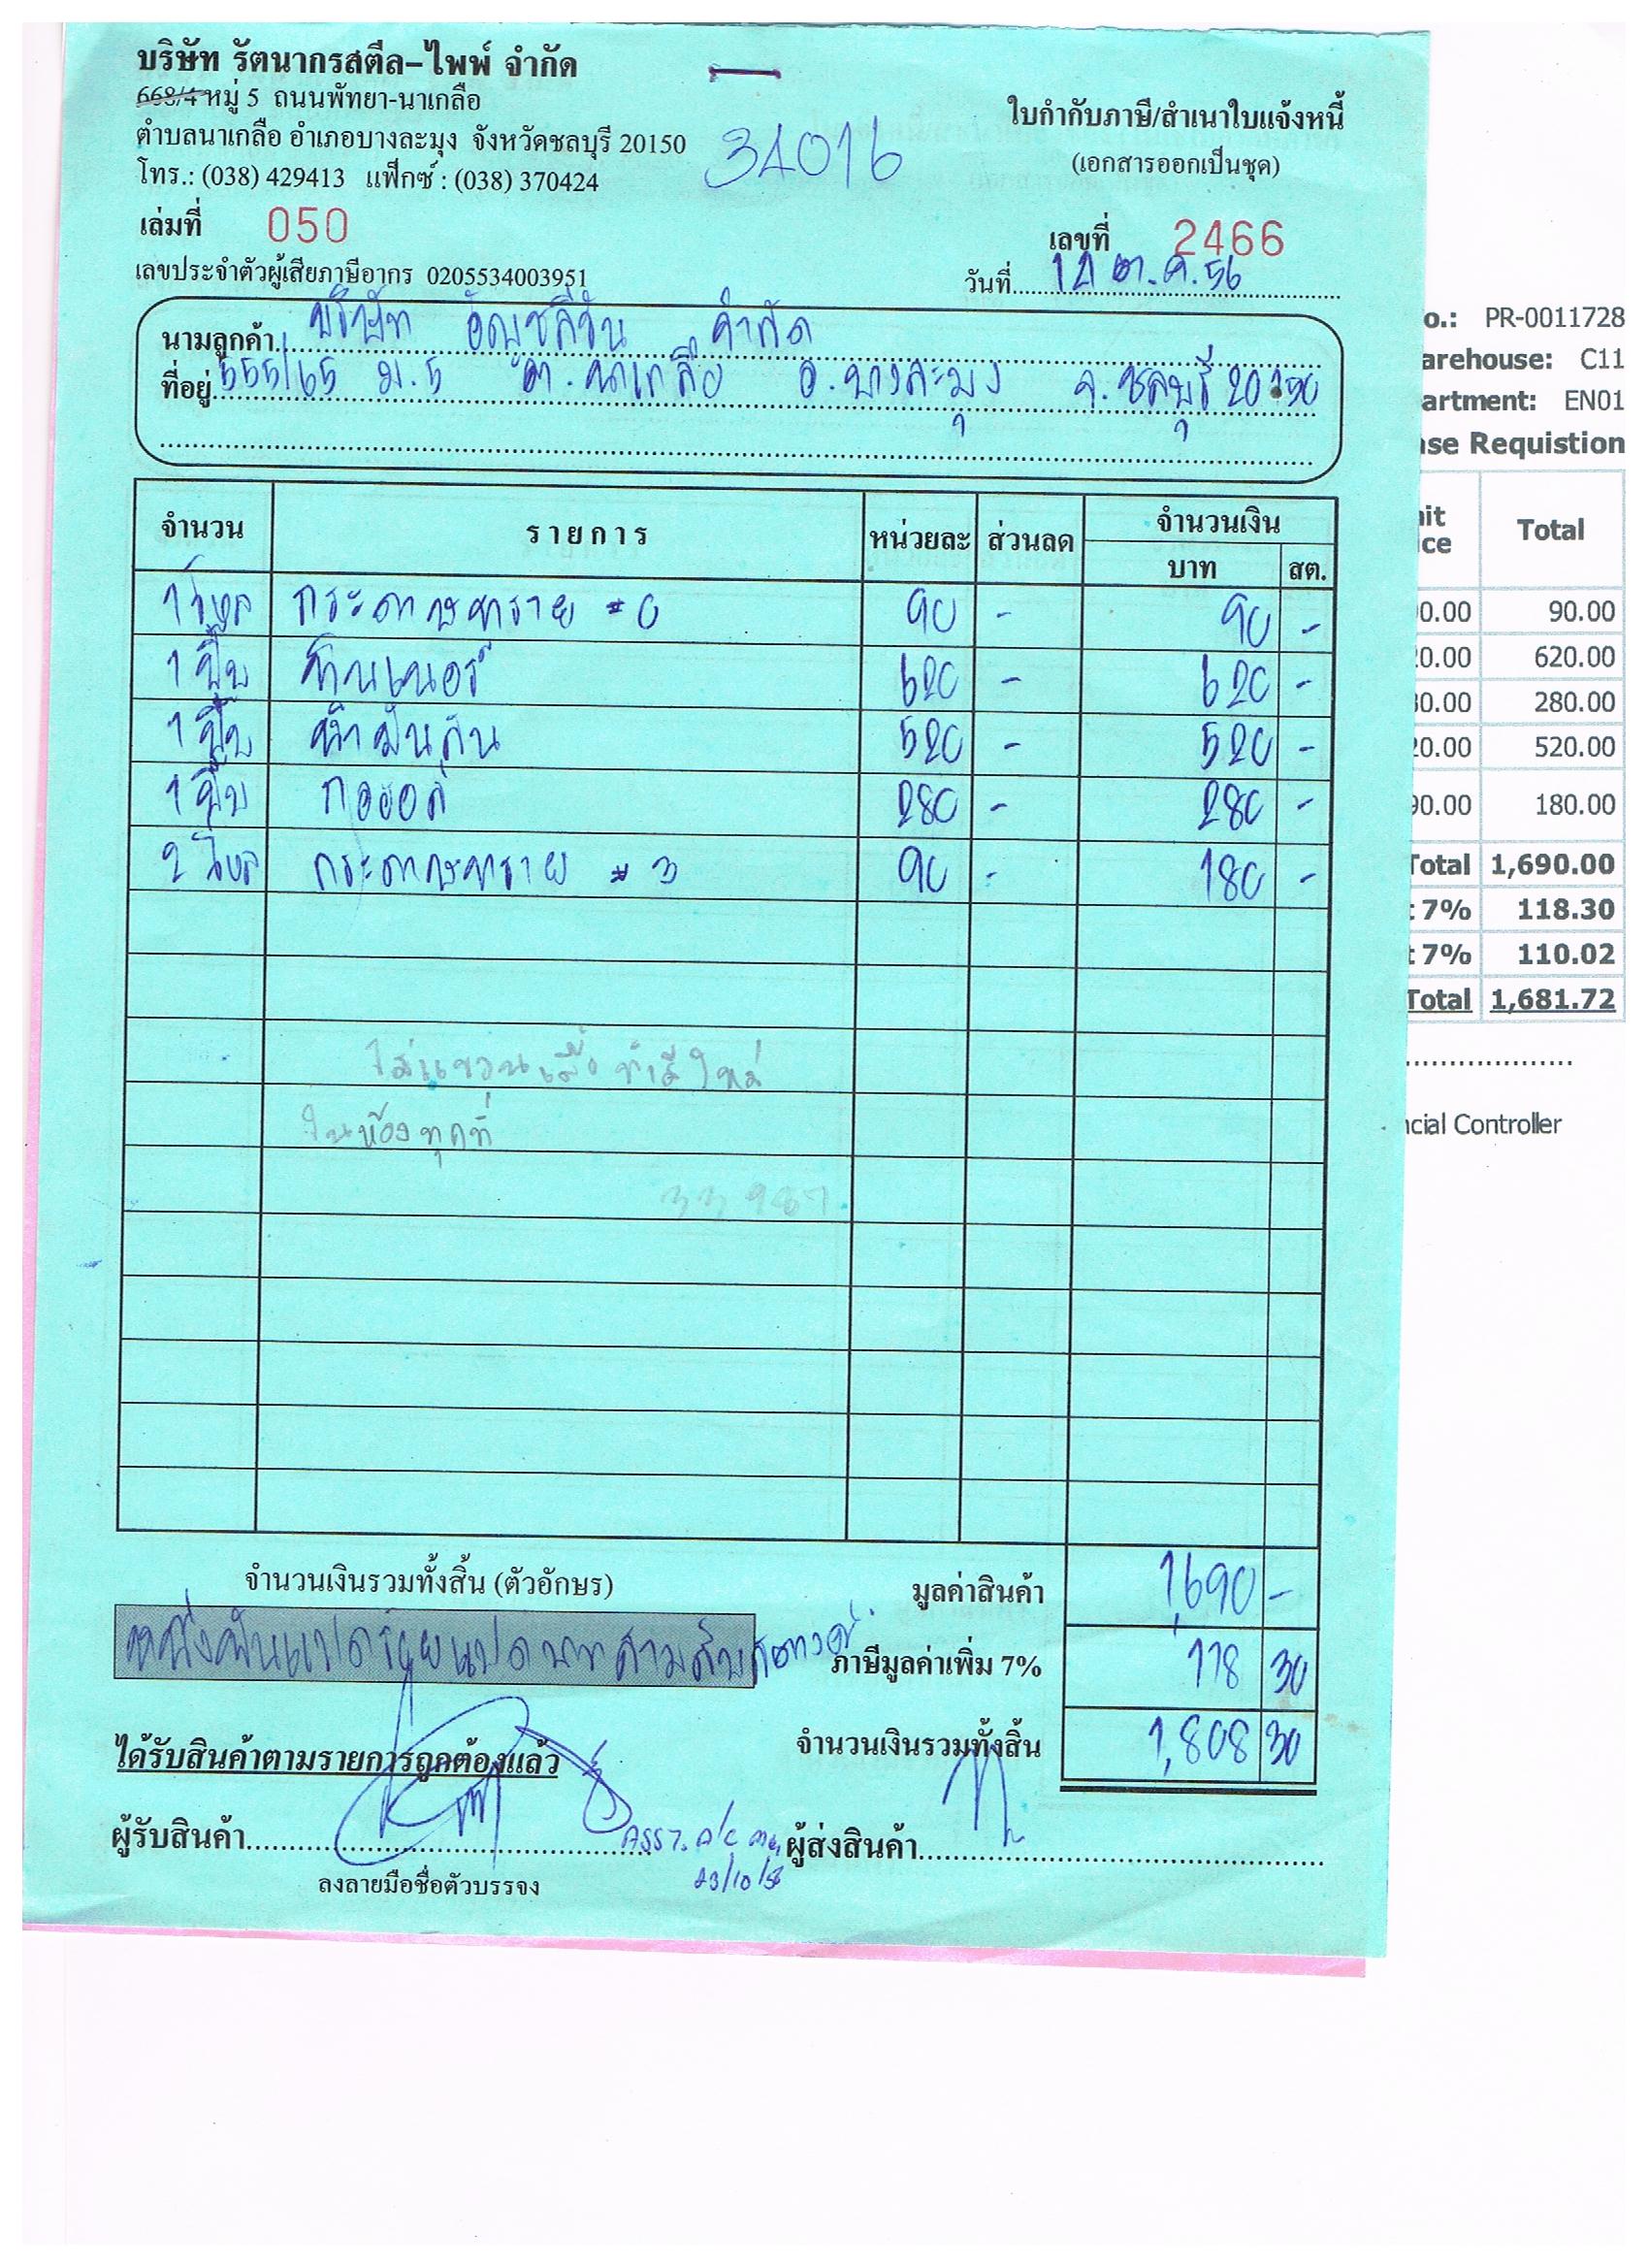 บริษัท รัตนากรสตีล-ไพพ์ จำกัด
668/4 หมู่ 5 ถนนพัทยา-นาเกลือ
ตำบลนาเกลือ อำเภอบางละมุง จังหวัดชลบุรี 20150
โทร.: (038) 429413 แฟ็กซ์ : (038) 370424
34016
ใบกำกับภาษี/สำเนาใบแจ้งหนี้
(เอกสารออกเป็นชุด)
เล่มที่ 050
เลขที่ 2466
เลขประจำตัวผู้เสียภาษีอากร 0205534003951
วันที่ 12 ต.ค. 56
นามลูกค้า บริษัท อัญชลีรัน จำกัด
ที่อยู่ 555/65 ม.5 ต.นาเกลือ อ.บางละมุง จ.ชลบุรี 20150
จำนวน รายการ หน่วยละ ส่วนลด จำนวนเงิน
บาท สต.
1 โหล กระดาษทราย #0 90 - 90 -
1 ปี๊บ ทินเนอร์ 620 - 620 -
1 ปี๊บ น้ำมันสน 520 - 520 -
1 ปี๊บ 280 - 280 -
2 โหล กระดาษทราย #3 90 - 180 -
ในห้องทุกที่
จำนวนเงินรวมทั้งสิ้น (ตัวอักษร)
มูลค่าสินค้า 1,690 -
หนึ่งพันแปดร้อยแปดบาทสามสิบสตางค์
ภาษีมูลค่าเพิ่ม 7% 118 30
จำนวนเงินรวมทั้งสิ้น 1,808 30
ได้รับสินค้าตามรายการถูกต้องแล้ว
ผู้รับสินค้า
ผู้ส่งสินค้า
23/10/56
ลงลายมือชื่อตัวบรรจง
o.: PR-0011728
arehouse: C11
artment: EN01
ase Requistion
nit
ice
Total
0.00 90.00
20.00 620.00
80.00 280.00
20.00 520.00
90.00 180.00
Total 1,690.00
t 7% 118.30
t 7% 110.02
Total 1,681.72
ncial Controller